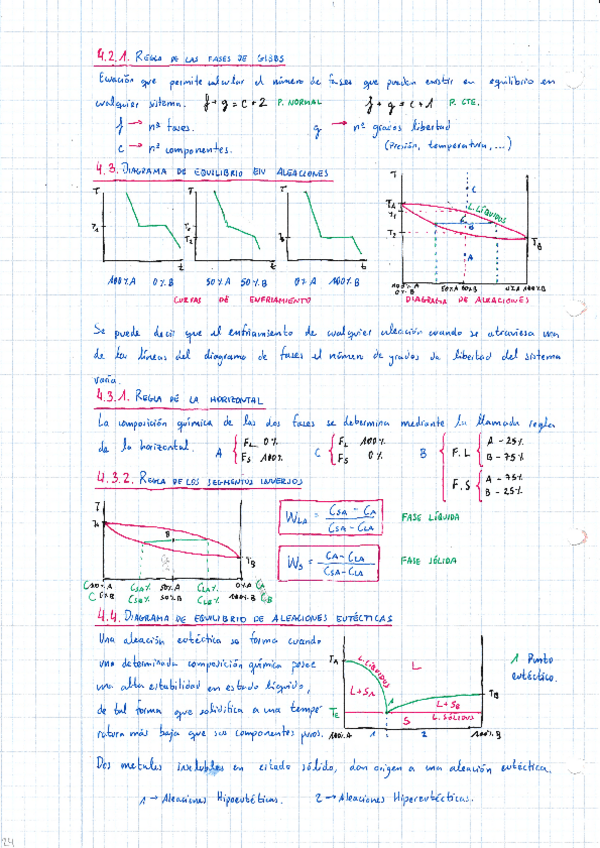 4.2.1. REGLA DE LAS FASES DE GIBBS
Ecuación que permite calcular el número de fases que pueden existir en equilibrio en
cualquier sistema. f + g = c + 2 P. NORMAL f + g = c + 1 P. CTE.
f → nº fases. g → nº grados libertad
c → nº componentes. (Presión, temperatura, ...)
4.3. DIAGRAMA DE EQUILIBRIO EN ALEACIONES
T T T T
TA T1 T2 TB
TA T1 T2 TB
C L. LÍQUIDOS B A
t t t
100% A 0% B 50% A 50% B 0% A 100% B 100% A 0% B 50% A 50% B 0% A 100% B
CURVAS DE ENFRIAMIENTO DIAGRAMA DE ALEACIONES
Se puede decir que el enfriamiento de cualquier aleación cuando se atraviesa una
de las líneas del diagrama de fases el número de grados de libertad del sistema
varía.
4.3.1. REGLA DE LA HORIZONTAL
La composición química de las dos fases se determina mediante la llamada regla
de la horizontal. A { FL 0% FS 100% C { FL 100% FS 0% B { F.L { A - 25% B - 75%
F.S { A - 75% B - 25%
4.3.2. REGLA DE LOS SEGMENTOS INVERSOS
T TA B TB
WLA = CSA - CA / CSA - CLA FASE LÍQUIDA
WS = CA - CLA / CSA - CLA FASE SÓLIDA
CSA% 50% A CLA% 0% A CA
CSB% 50% B CLB% 100% B CB
4.4. DIAGRAMA DE EQUILIBRIO DE ALEACIONES EUTÉCTICAS
Una aleación eutéctica se forma cuando
una determinada composición química posee
una alta estabilidad en estado líquido,
de tal forma que solidifica a una tempe
ratura más baja que sus componentes puros.
TA L. LÍQUIDOS L TB
L+SA 1 L+SB
TE S L. SÓLIDUS
100% A 1 2 100% B
1 Punto
eutéctico.
Dos metales insolubles en estado sólido, dan origen a una aleación eutéctica.
1 → Aleaciones Hipoeutécticas. 2 → Aleaciones Hipereutécticas.
24